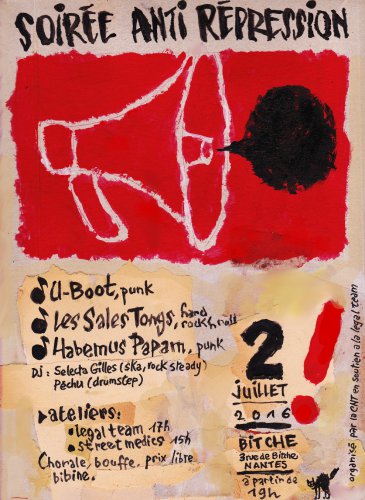 SOIRÉE ANTI RÉPRESSION
U-Boot, punk
Les Sales Tongs, hard rock'n roll
Habemus Papam, punk
DJ: Selecta Gilles (ska, rock steady)
Pachu (drumstep)
ateliers:
legal team 17h
street medics 15h
Chorale, bouffe, prix libre
bibine.
2
JUILLET
2016
!
BITCHE
3 rue de Bitche
NANTES
à partir de
19h
organisé par la CNT en soutien à la legal team